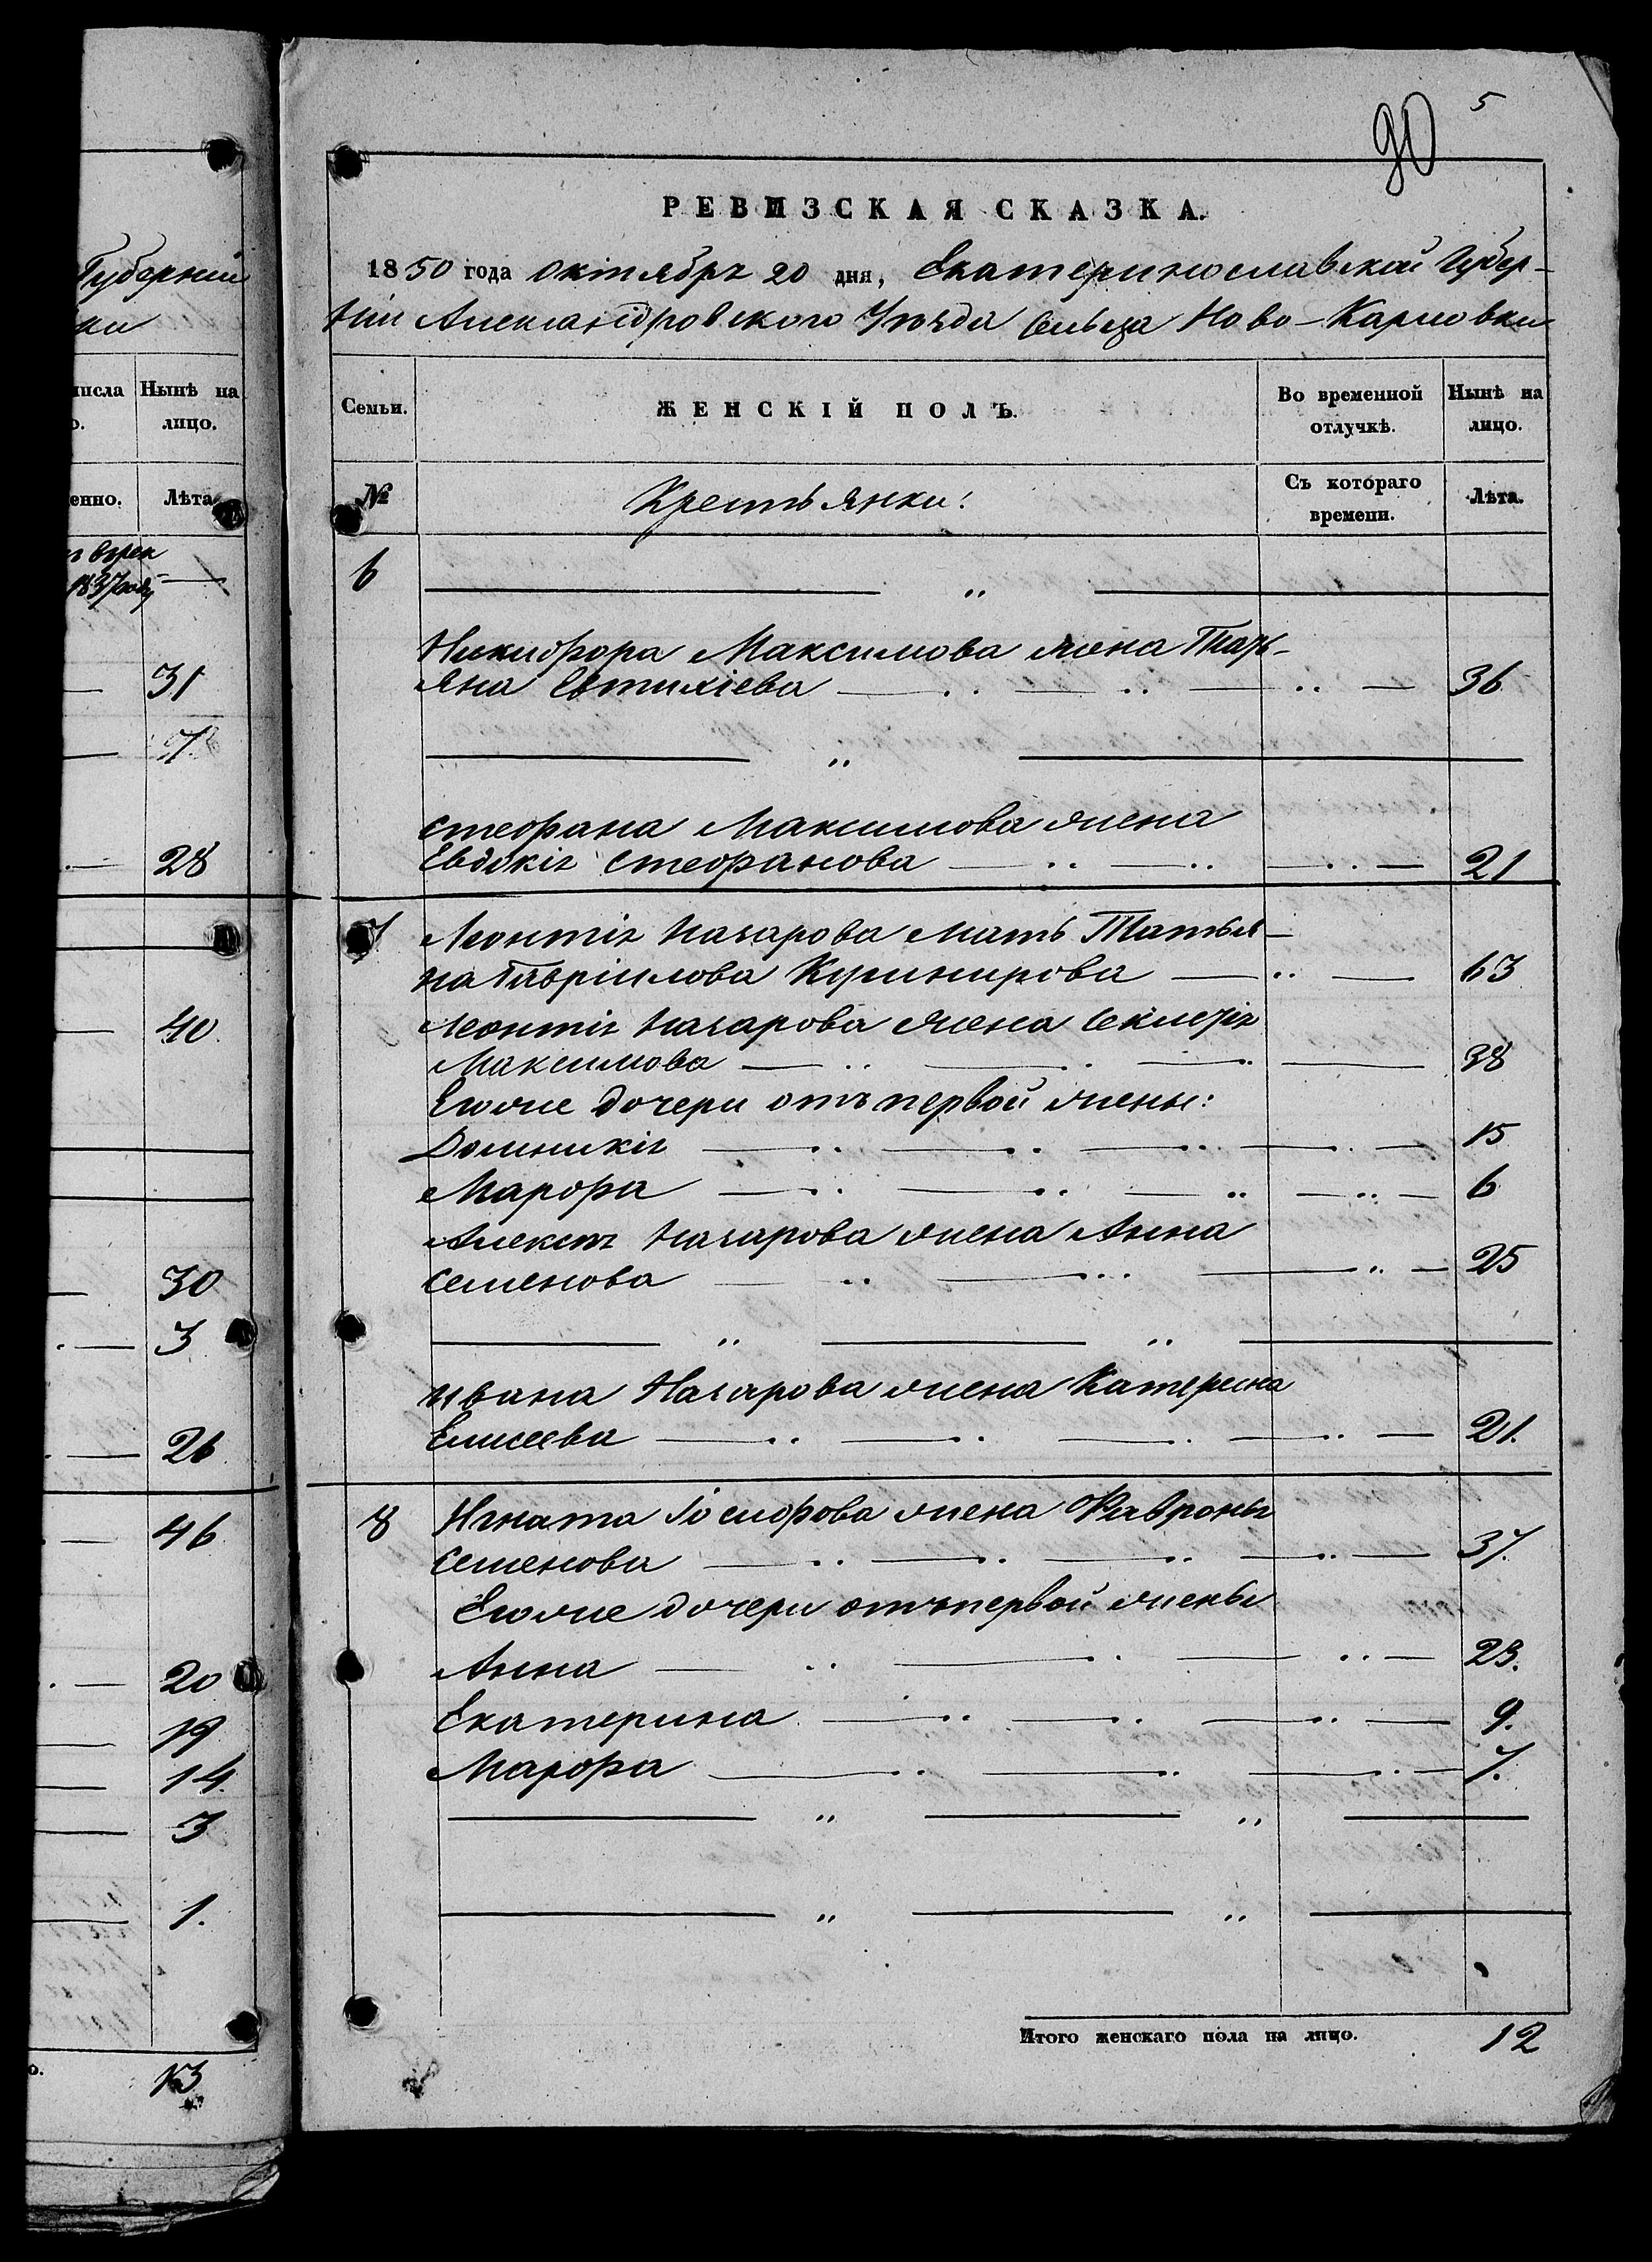 Губерніи
ки
числа Нынѣ на
о. лицо.
енно. Лѣта
1837 году —
— 31
— 7
— 28
— 40
— 30
— 3
— 26
— 46
— 20
— 19
— 14
— 3
— 1.
о. 13
90 5
РЕВИЗСКАЯ СКАЗКА.
1850 года октября 20 дня, Екатеринославской Губер-
ніи Александровского Уѣзда сельца Ново-Карловки
Семьи. ЖЕНСКІЙ ПОЛЪ. Во временной отлучкѣ. Нынѣ на лицо.
№ Крестьянки: Съ котораго времени. Лѣта.
6 — „ —
Никифора Максимова жена Тать-
яна Евтихіева — 36
— „ —
Стефана Максимова жена
Евдокія Стефанова — 21
7 Леонтія Назарова мать Татья-
на Гавріилова — 63
Леонтія Назарова жена
Максимова — 38
Егоже дочери отъ первой жены:
Домникія — 15
Марфа — 6
Алексѣя Назарова жена Анна
Семенова — 25
— „ — „ —
Ивана Назарова жена Катерина
Елисеева — 21.
8 Игната Іосифова жена
Семенова — 37.
Егоже дочери отъ первой жены
Анна — 23.
Екатерина — 9.
Марфа — 7.
— „ — „ —
— „ — „ —
Итого женскаго пола на лицо. 12